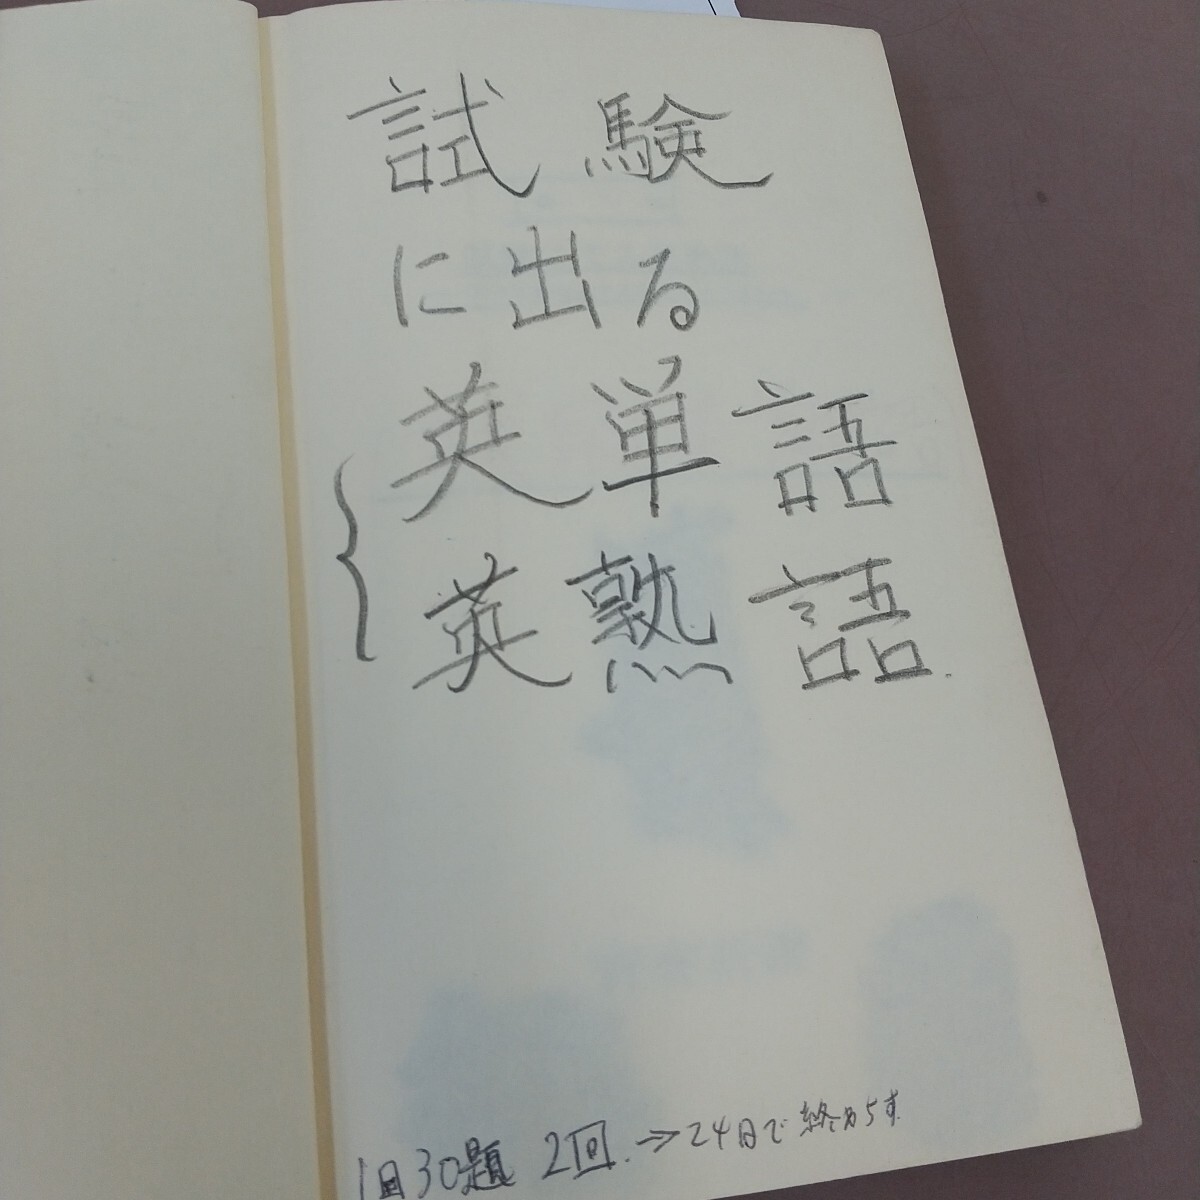 試験
に出る
英単語
英熟語.
1日30題 2回. → 24日で終わらす.